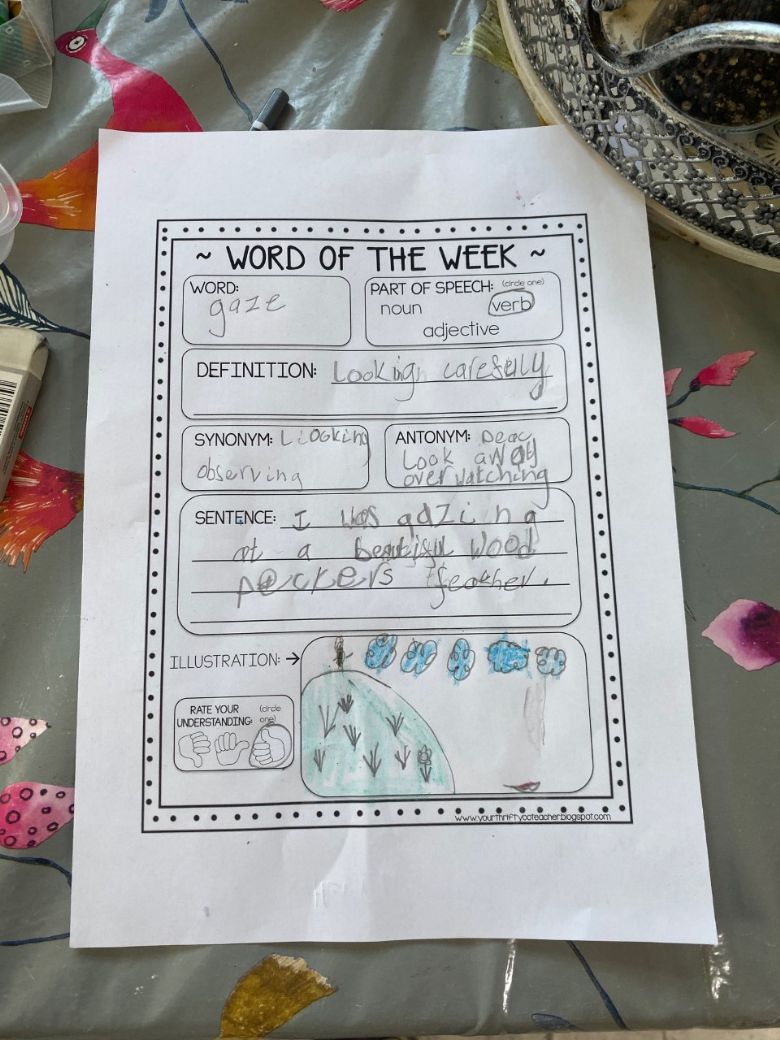 ~ WORD OF THE WEEK ~
WORD:
gaze
PART OF SPEECH: (circle one)
noun verb
adjective
DEFINITION: Looking carefully
SYNONYM: Liooking
observing
ANTONYM:
Look away
over watching
SENTENCE: I was gazing
at a beautiful wood
peckers feather.
ILLUSTRATION: →
RATE YOUR (circle
UNDERSTANDING: one)
www.yourthriftycoteacher.blogspot.com